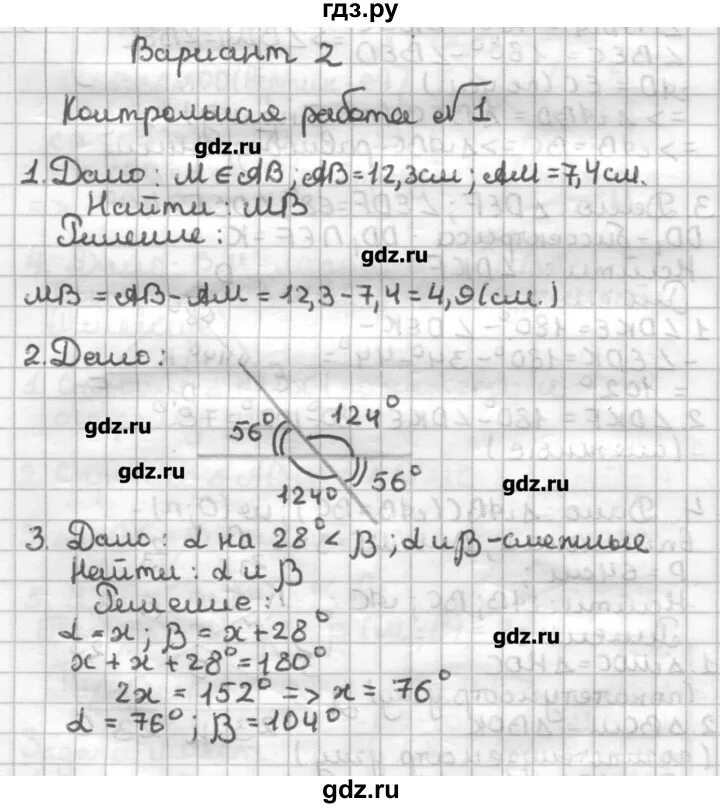 гдз.ру
Вариант 2
Контрольная работа №1
gdz.ru
1. Дано: M∈AB; AB=12,3см; AM=7,4см.
Найти: MB
Решение:
gdz.ru
MB = AB-AM = 12,3-7,4=4,9(см.)
2. Дано:
gdz.ru
56° 124°
gdz.ru
124° 56°
gdz.ru
3. Дано: α на 28°< β; α и β-смежные
Найти: α и β
Решение:
α = x; β = x+28°
gdz.ru
x + x + 28°=180°
2x = 152° => x = 76°
α = 76°; β=104°
gdz.ru